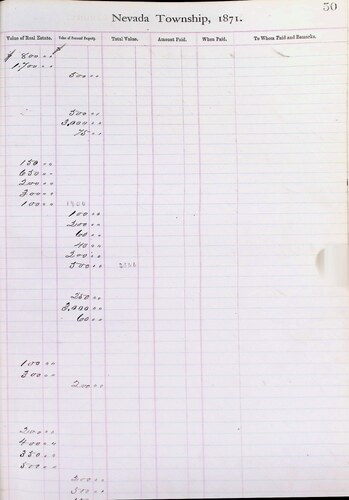 50
Nevada Township, 1871.
Value of Real Estate. Value of Personal Property. Total Value. Amount Paid. When Paid. To Whom Paid and Remarks.
$ 800 00 $
1,700 00
500 00
500 00
3,000 00
75 00
150 00
650 00
200 00
300 00
100 00
100 00
200 00
60 00
40 00
200 00
500 00
250 00
3,000 00
60 00
100 00
300 00
200 00
200 00
400 00
350 00
500 00
200 00
500 00